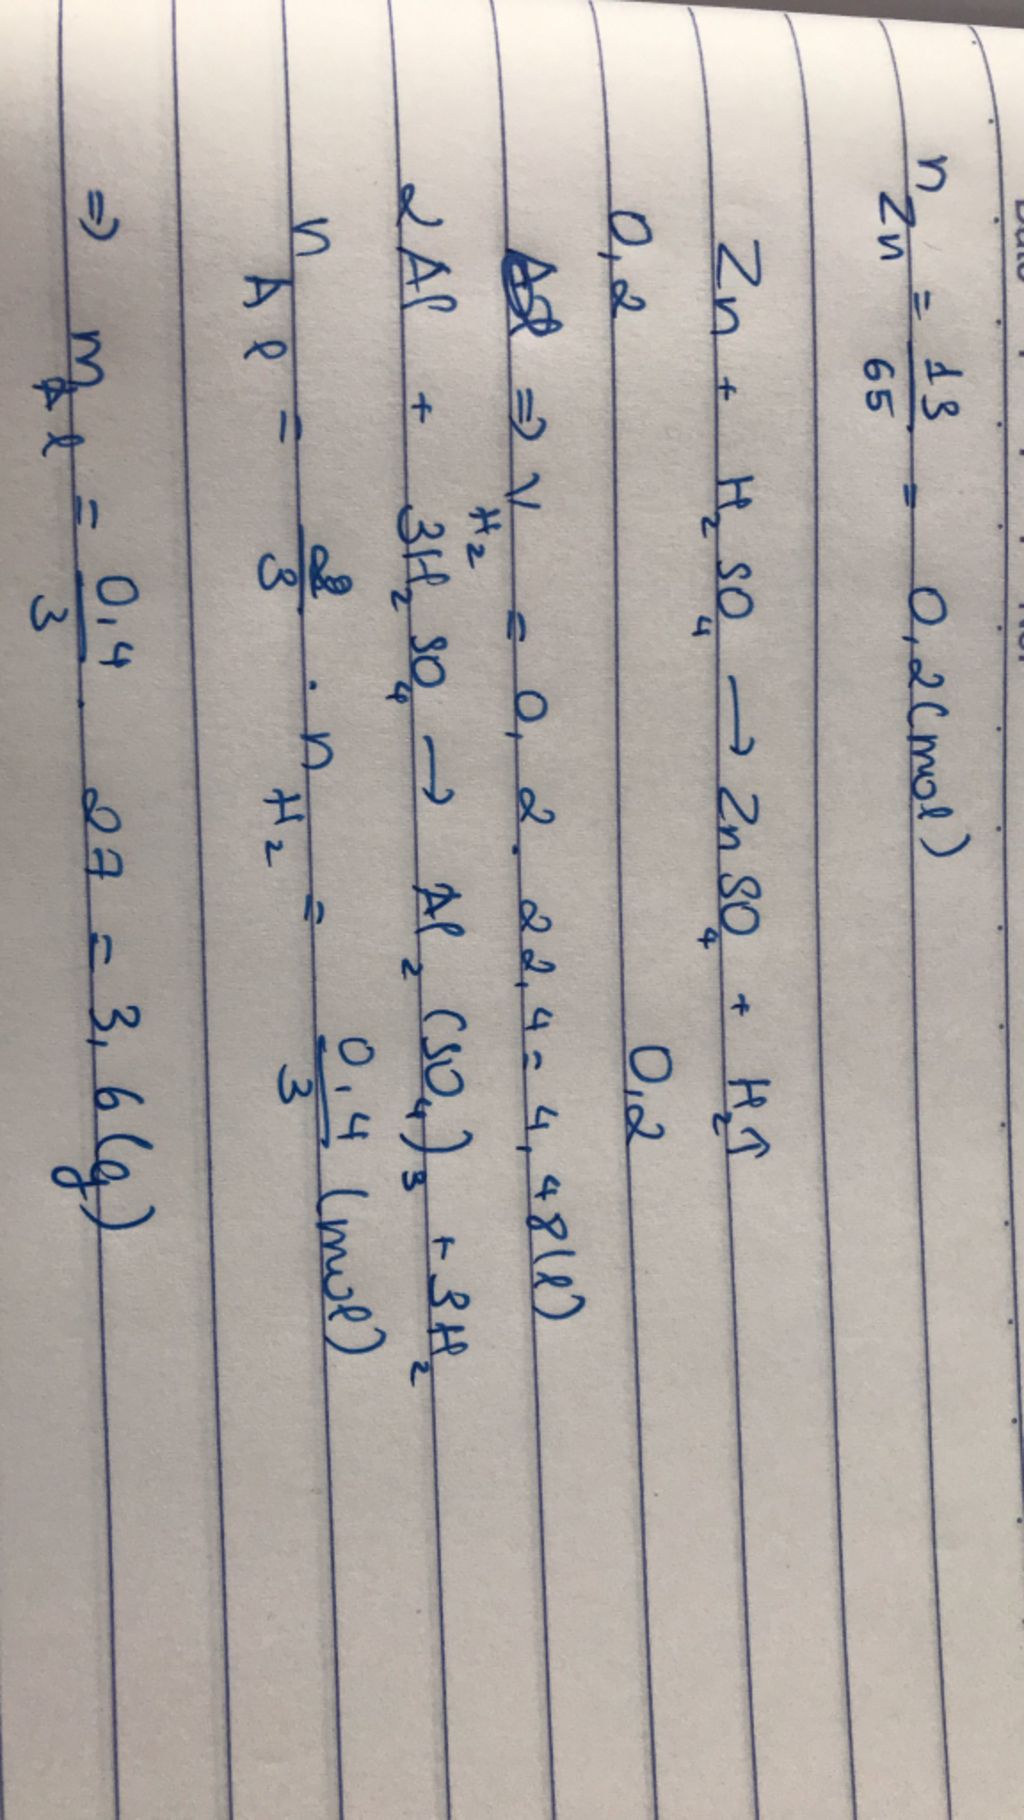 n Zn = 13/65 = 0,2 (mol)
Zn + H₂SO₄ → ZnSO₄ + H₂↑
0,2 0,2
⇒ V H₂ = 0,2 . 22,4 = 4,48 (l)
2Al + 3H₂SO₄ → Al₂(SO₄)₃ + 3H₂
n Al = 2/3 . n H₂ = 0,4/3 (mol)
⇒ m Al = 0,4/3 . 27 = 3,6 (g)